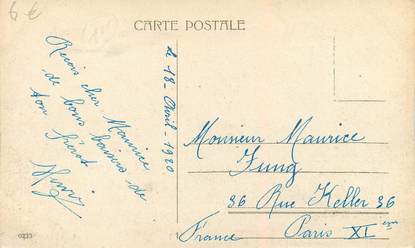 6 €
CARTE POSTALE
Reçois cher Maurice
de bons baisers de
ton frérot
le 18 - Avril - 1920
Monsieur Maurice
Jung
36 Rue Keller 36
Paris XIème
France